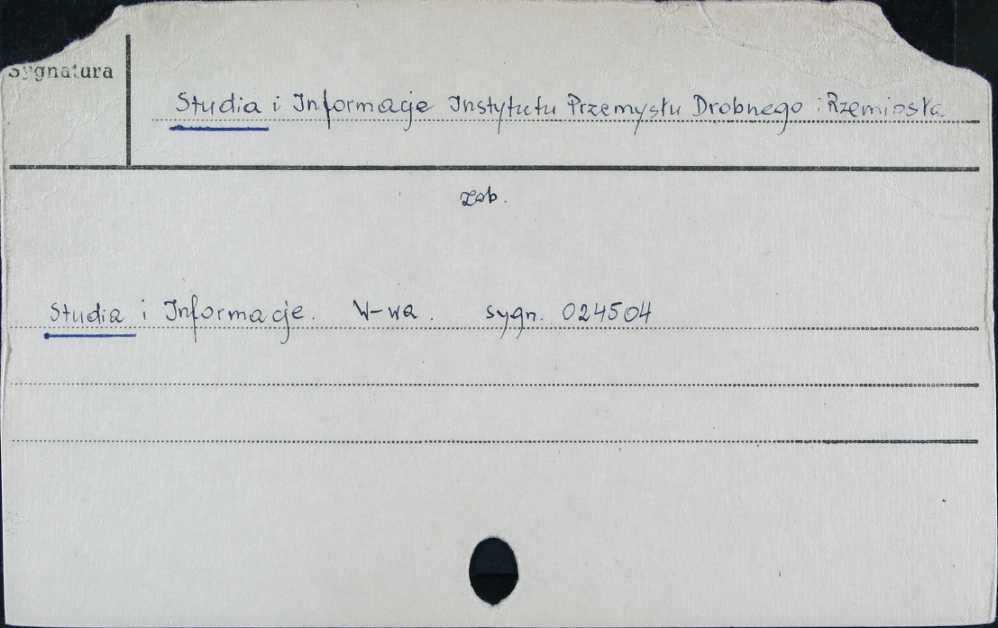 Sygnatura
Studia i Informacje Instytutu Przemysłu Drobnego i Rzemiosła
zob.
Studia i Informacje. W-wa. sygn. 024504